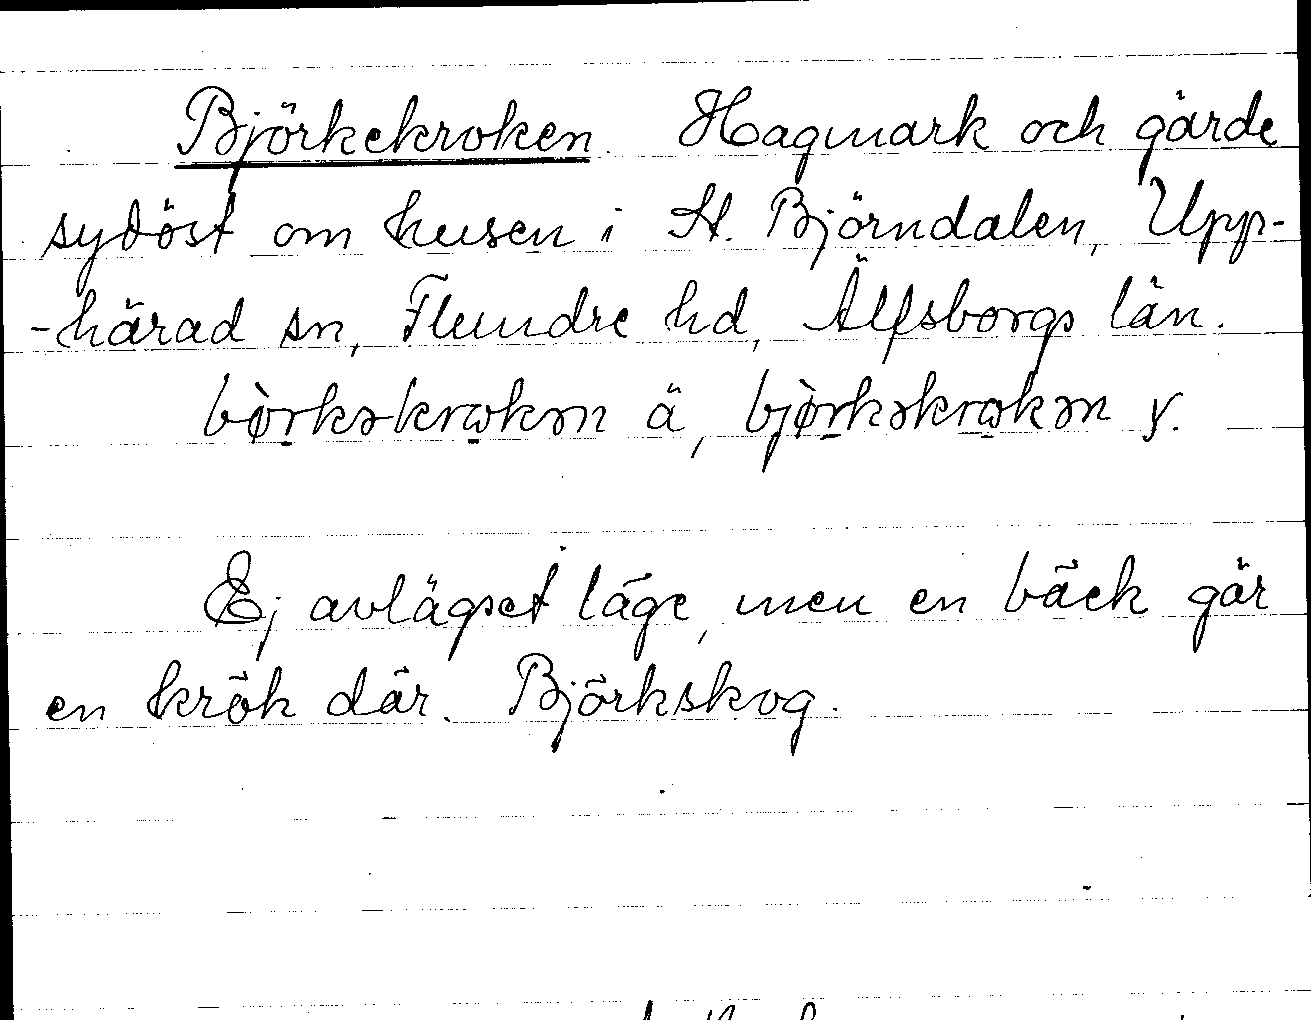 Björkekroken. Hagmark och gärde
sydöst om husen i St. Björndalen, Upp-
-härad sn, Flundre hd, Älfsborgs län.
bø̀rkəkrokən ä, bjø̀rkəkrokən y.
Ej avlägset läge, men en bäck går
en krök där. Björkskog.